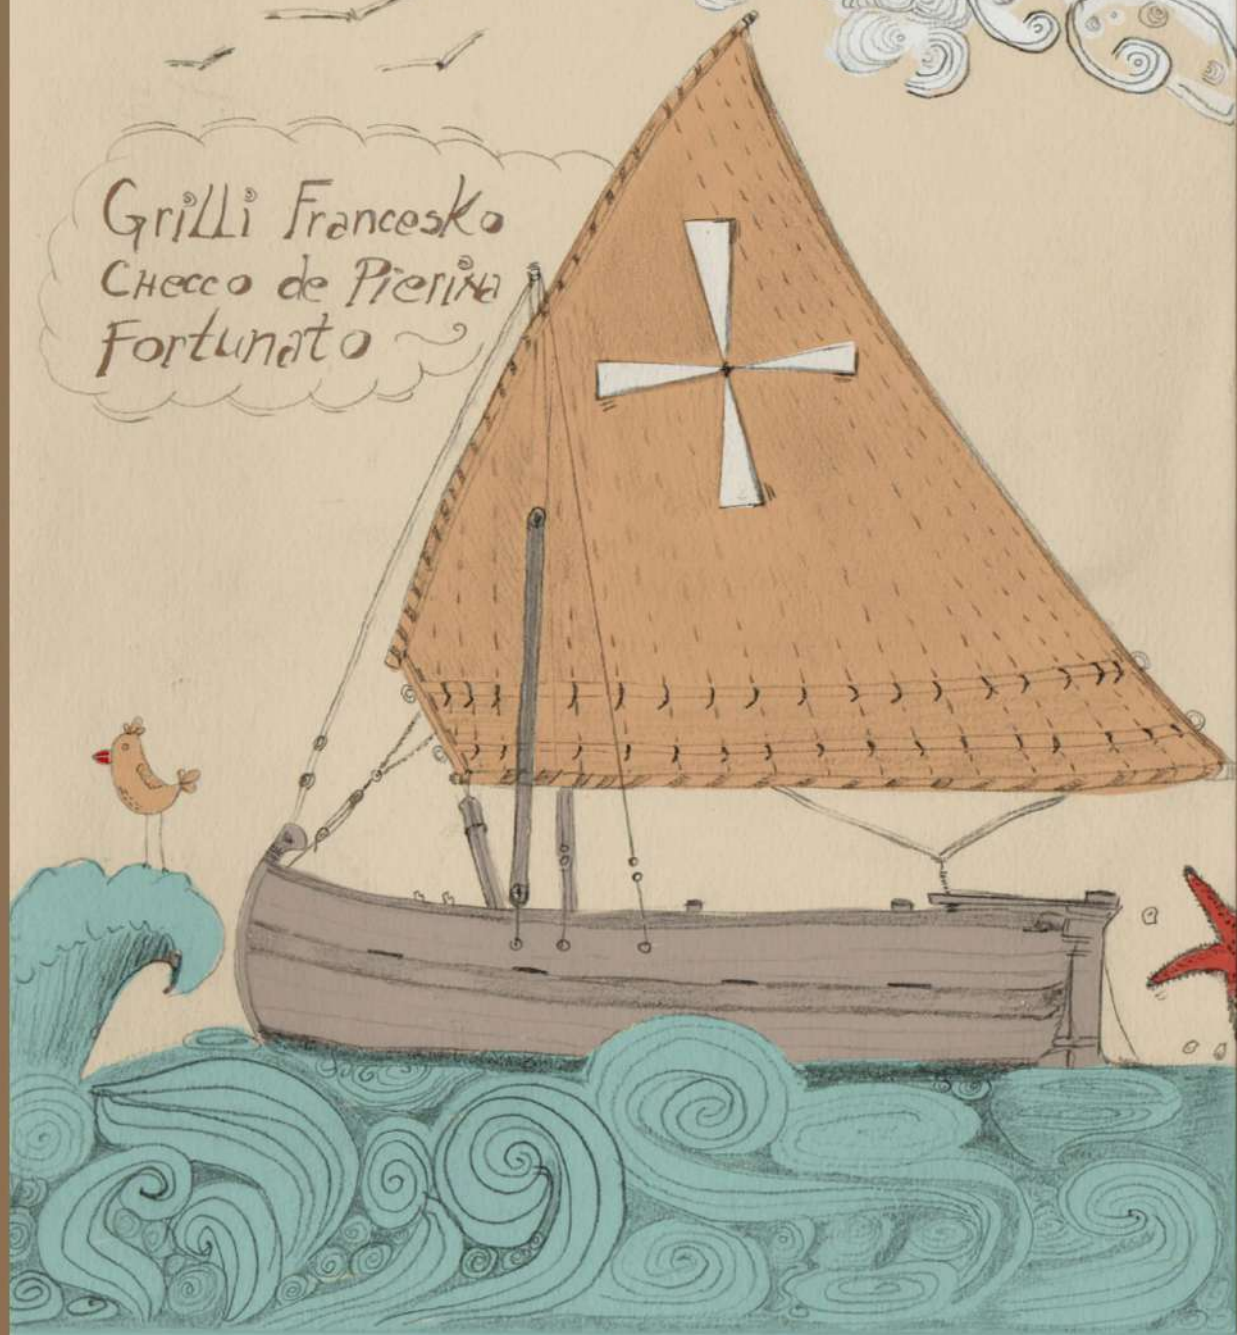 Grilli Francesko
Checco de Pierina
Fortunato